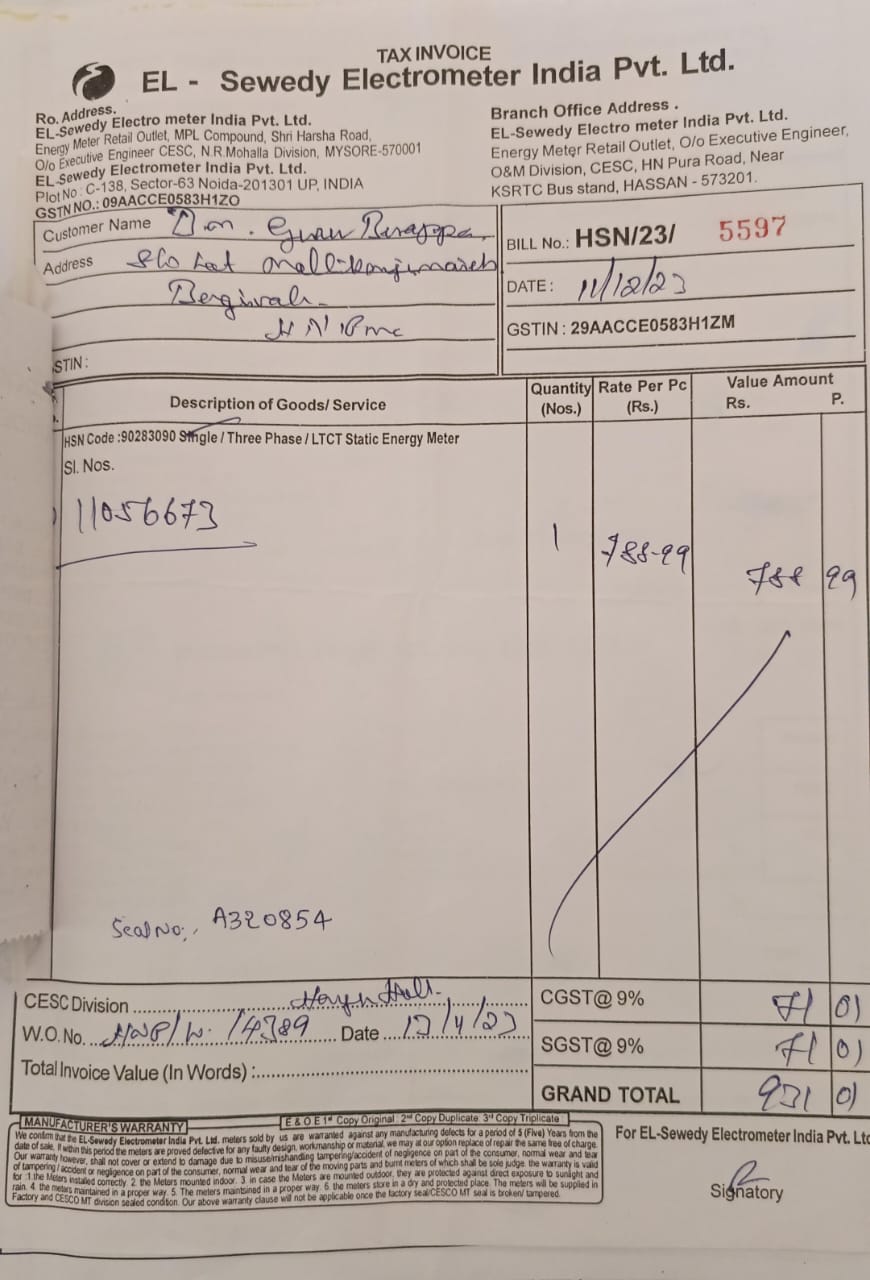 TAX INVOICE
EL - Sewedy Electrometer India Pvt. Ltd.
Ro. Address.
EL-Sewedy Electro meter India Pvt. Ltd.
Energy Meter Retail Outlet, MPL Compound, Shri Harsha Road,
O/o Executive Engineer CESC, N.R.Mohalla Division, MYSORE-570001
EL-Sewedy Electrometer India Pvt. Ltd.
Plot No : C-138, Sector-63 Noida-201301 UP, INDIA
GSTN NO.: 09AACCE0583H1ZO
Branch Office Address .
EL-Sewedy Electro meter India Pvt. Ltd.
Energy Meter Retail Outlet, O/o Executive Engineer,
O&M Division, CESC, HN Pura Road, Near
KSRTC Bus stand, HASSAN - 573201.
Customer Name
Address
STIN :
BILL No.: HSN/23/ 5597
DATE : 11/12/23
GSTIN : 29AACCE0583H1ZM
Description of Goods/ Service Quantity (Nos.) Rate Per Pc (Rs.) Value Amount Rs. P.
HSN Code :90283090 Single / Three Phase / LTCT Static Energy Meter
Sl. Nos.
11056673 1 788-99 788 99
Seal No; A320854
CESC Division
W.O. No. /4389 Date
Total Invoice Value (In Words) :
CGST@ 9% 71 01
SGST@ 9% 71 01
GRAND TOTAL 931 01
MANUFACTURER'S WARRANTY E & O E 1st Copy Original : 2nd Copy Duplicate 3rd Copy Triplicate :
We confirm that the EL-Sewedy Electrometer India Pvt. Ltd. meters sold by us are warranted against any manufacturing defects for a period of 5 (Five) Years from the
date of sale. If within this period the meters are proved defective for any faulty design, workmanship or material, we may at our option replace of repair the same free of charge.
Our warranty however, shall not cover or extend to damage due to misuse/mishandling tampering/accident of negligence on part of the consumer, normal wear and tear
of tampering / accident or negligence on part of the consumer, normal wear and tear of the moving parts and burnt meters of which shall be sole judge. the warranty is valid
for :1. the Meters installed correctly. 2. the Meters mounted indoor. 3. in case the Meters are mounted outdoor, they are protected against direct exposure to sunlight and
rain. 4. the meters maintained in a proper way. 5. The meters maintained in a proper way. 6. the meters store in a dry and protected place. The meters will be supplied in
Factory and CESCO MT division sealed condition. Our above warranty clause will not be applicable once the factory seal/CESCO MT seal is broken/ tampered.
For EL-Sewedy Electrometer India Pvt. Ltd
Signatory